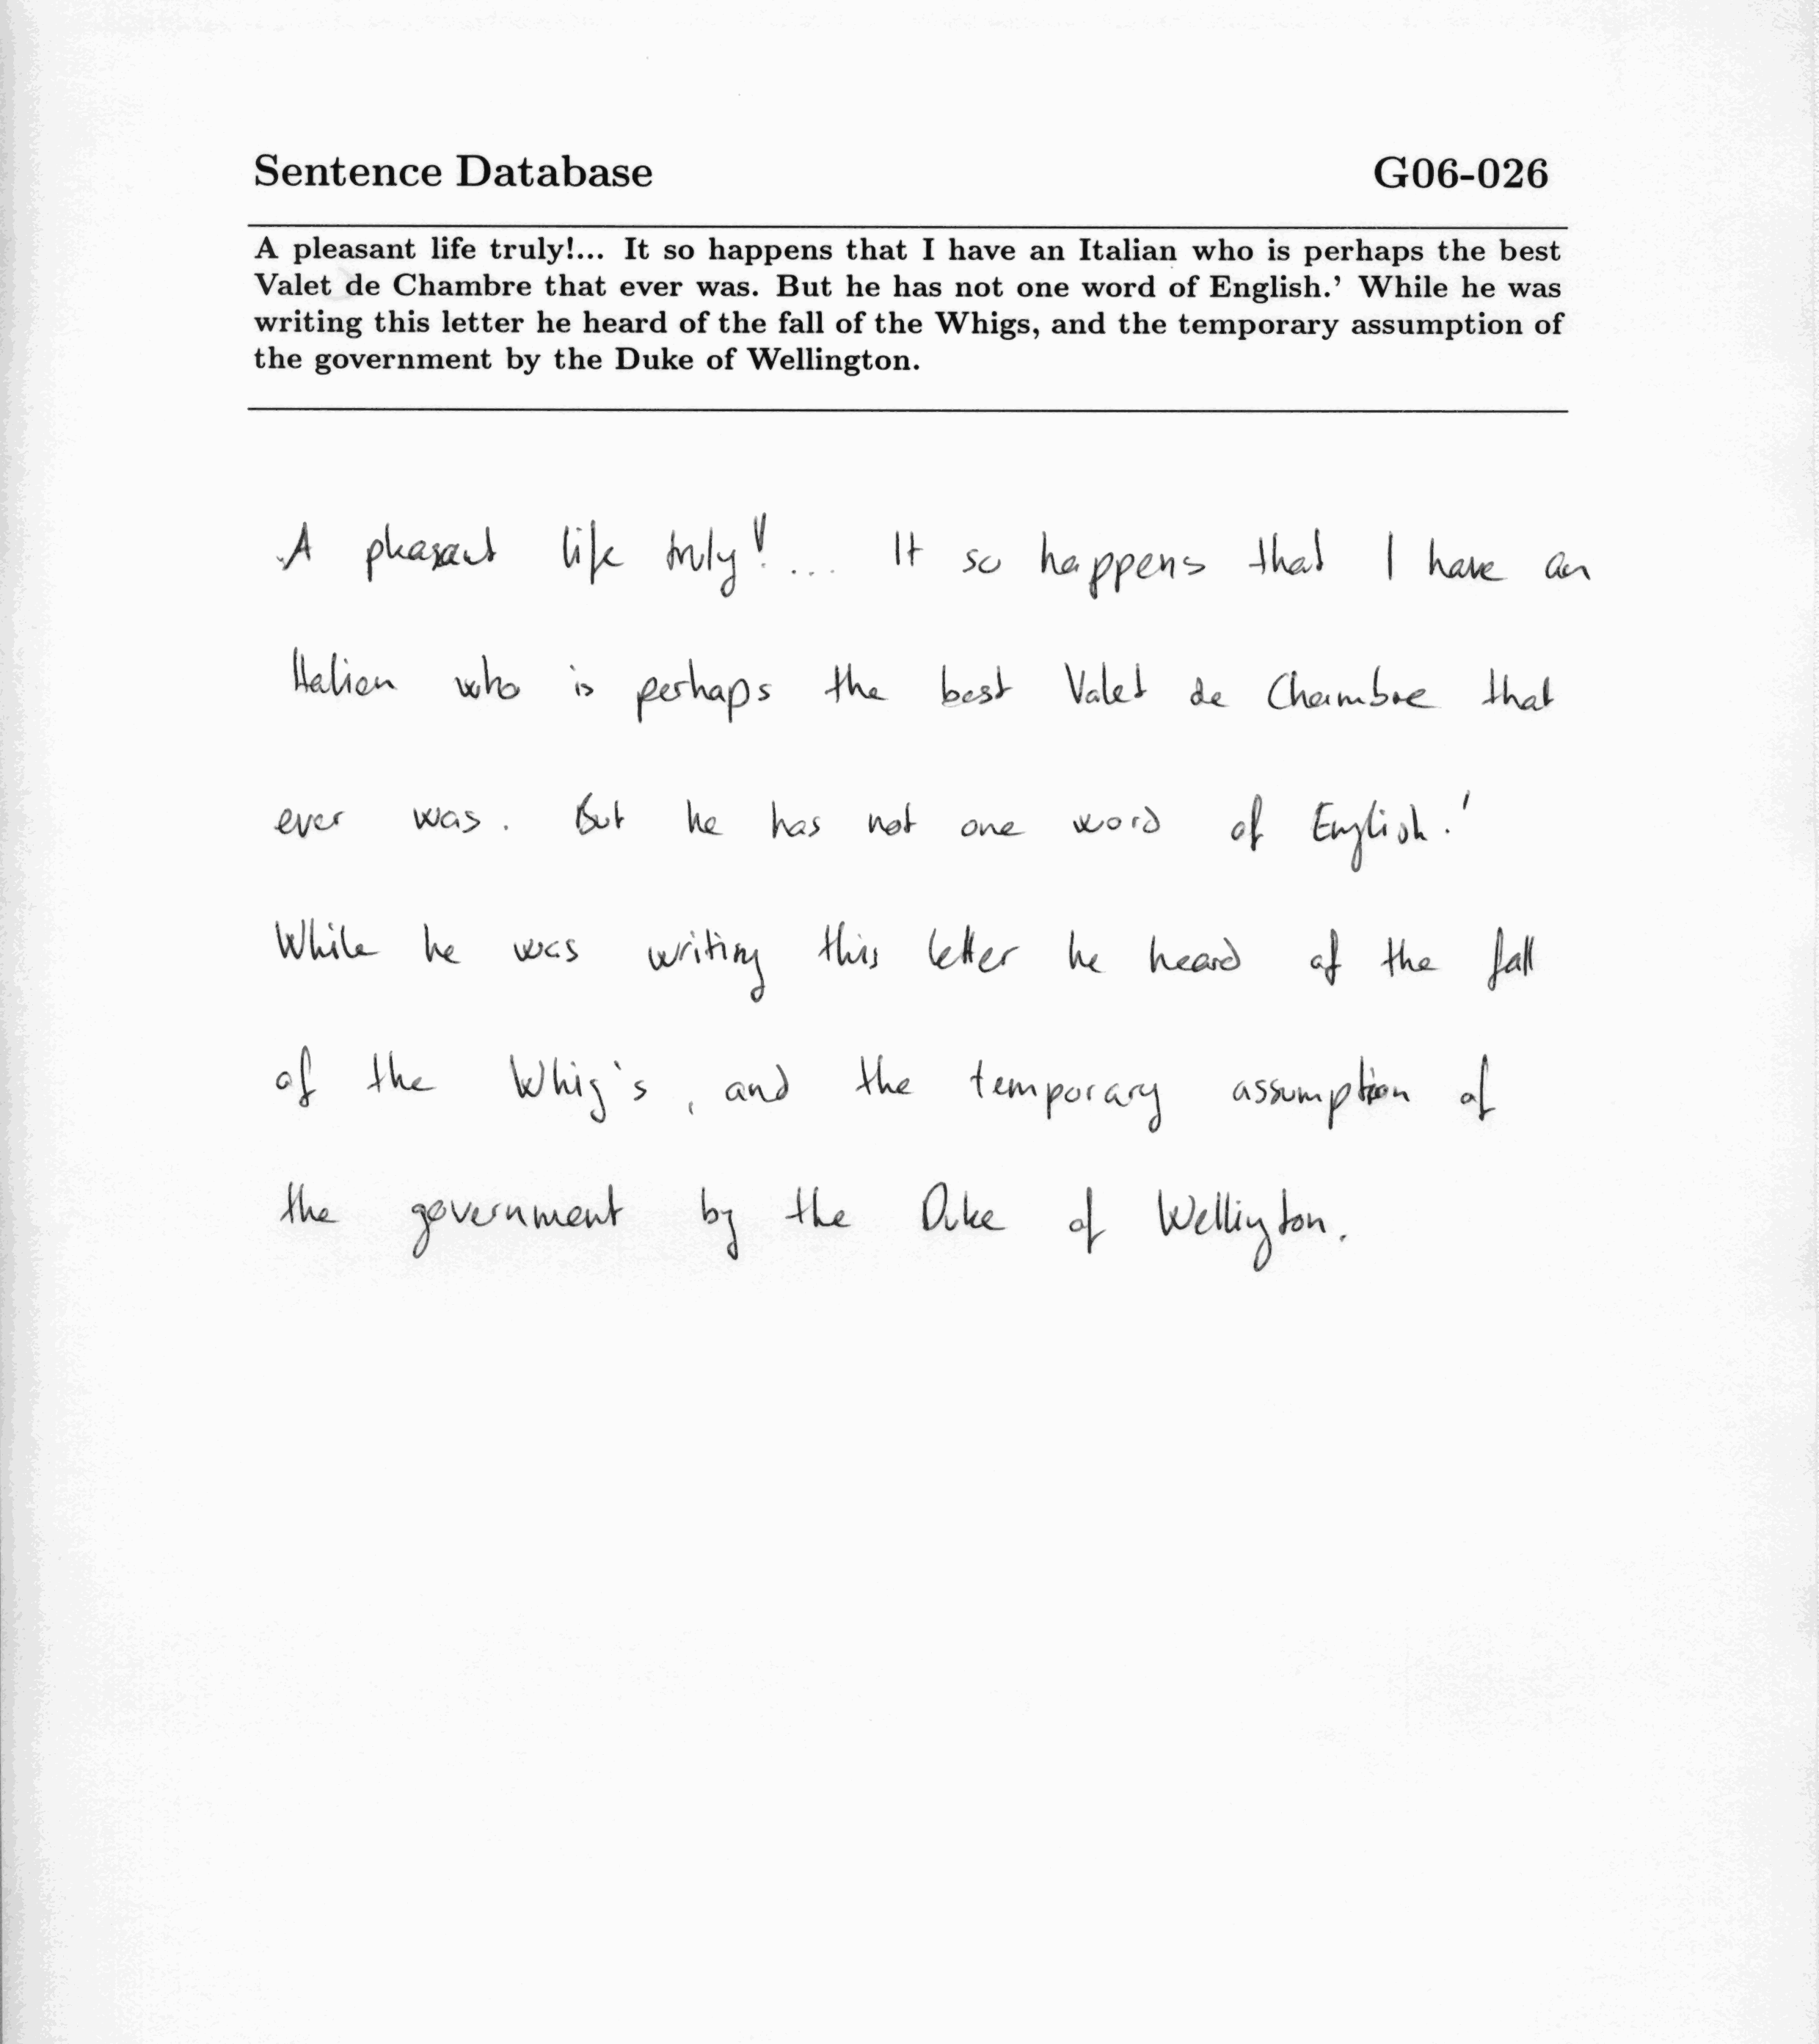 Sentence Database G06-026
A pleasant life truly!... It so happens that I have an Italian who is perhaps the best
Valet de Chambre that ever was. But he has not one word of English.' While he was
writing this letter he heard of the fall of the Whigs, and the temporary assumption of
the government by the Duke of Wellington.
A pleasant life truly!... It so happens that I have an
Italian who is perhaps the best Valet de Chambre that
ever was. But he has not one word of English.'
While he was writing this letter he heard of the fall
of the Whig's, and the temporary assumption of
the government by the Duke of Wellington.